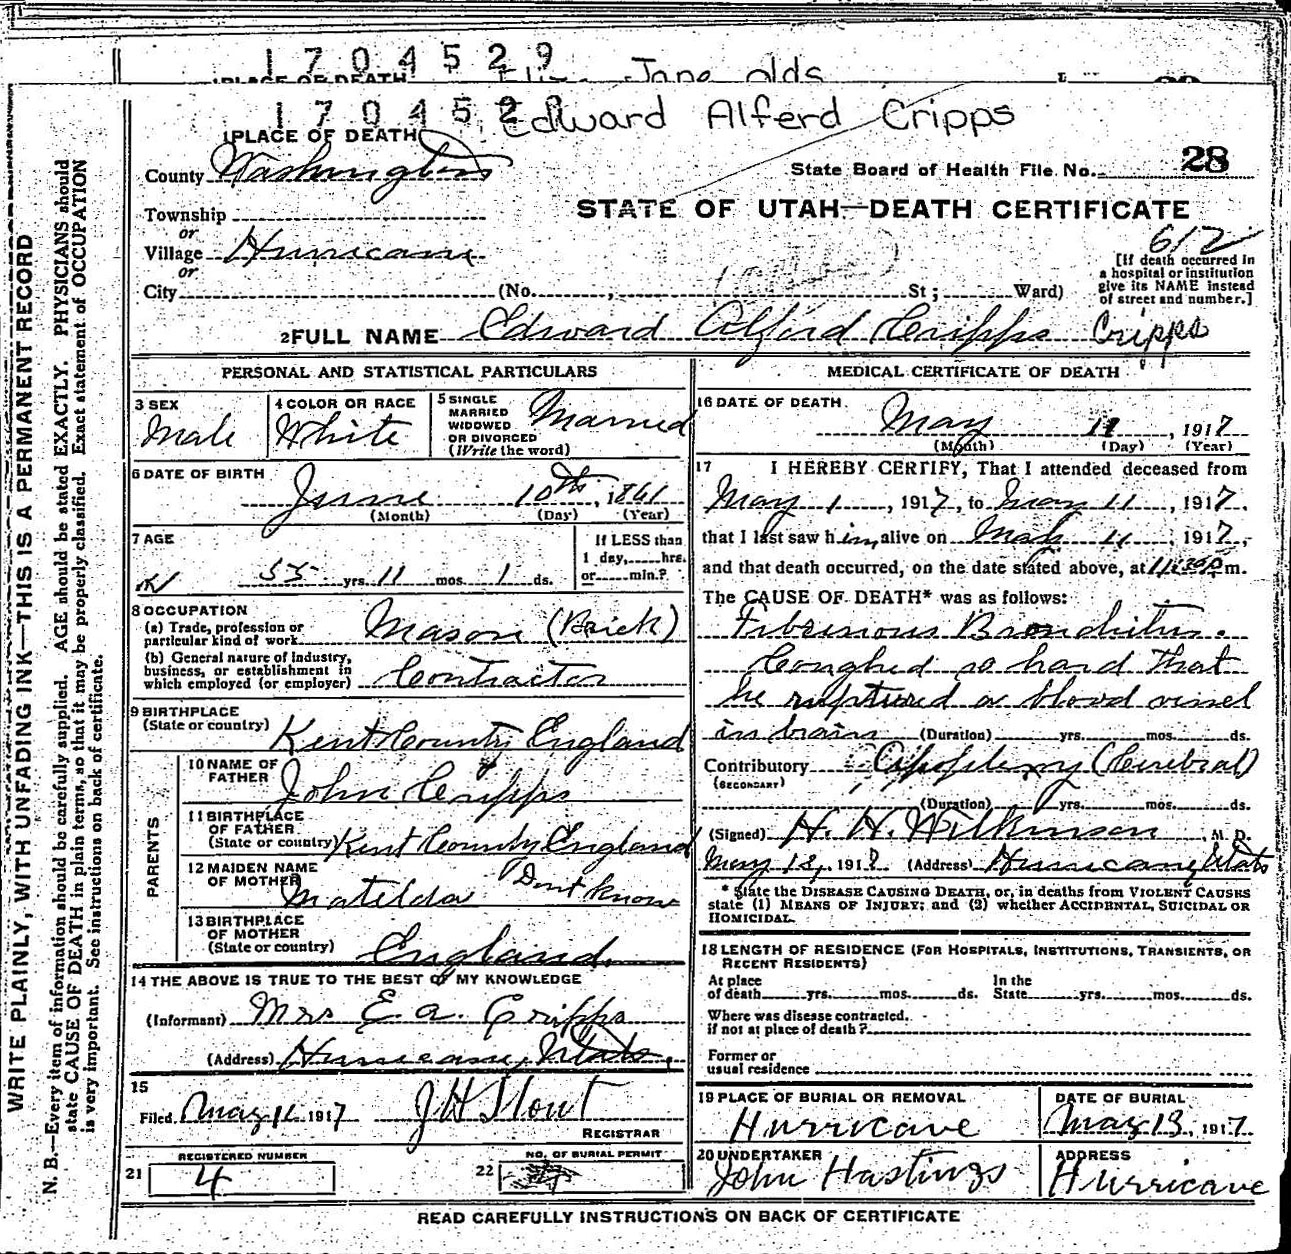 1704529
PLACE OF DEATH Jane olds
170452
Edward Alferd Cripps
1 PLACE OF DEATH
County Washington
State Board of Health File No. 28
STATE OF UTAH—DEATH CERTIFICATE
Township
or
Village Hurricane
or
City (No. , St; Ward)
612
[If death occurred in
a hospital or institution
give its NAME instead
of street and number.]
2 FULL NAME Edward Alford Cripps Cripps
PERSONAL AND STATISTICAL PARTICULARS
3 SEX
Male
4 COLOR OR RACE
White
5 SINGLE
MARRIED
WIDOWED
OR DIVORCED
(Write the word)
Married
6 DATE OF BIRTH
June 10th, 1861
(Month) (Day) (Year)
7 AGE
55 yrs. 11 mos. 1 ds.
If LESS than
1 day, hrs.
or min.?
8 OCCUPATION
(a) Trade, profession or
particular kind of work Mason (Brick)
(b) General nature of industry,
business, or establishment in
which employed (or employer) Contractor
9 BIRTHPLACE
(State or country) Kent County England
PARENTS
10 NAME OF
FATHER John Cripps
11 BIRTHPLACE
OF FATHER
(State or country) Kent County England
12 MAIDEN NAME
OF MOTHER Matilda Dont know
13 BIRTHPLACE
OF MOTHER
(State or country) England
14 THE ABOVE IS TRUE TO THE BEST OF MY KNOWLEDGE
(Informant) Mrs E. A. Cripps
(Address) Hurricane, Utah,
15
Filed May 11 1917 J H Stout
REGISTRAR
REGISTERED NUMBER
21 4
NO. OF BURIAL PERMIT
22
MEDICAL CERTIFICATE OF DEATH
16 DATE OF DEATH
May 11, 1917
(Month) (Day) (Year)
17 I HEREBY CERTIFY, That I attended deceased from
May 1, 1917, to May 11, 1917,
that I last saw him alive on May 11, 1917,
and that death occurred, on the date stated above, at 11:30 p m.
The CAUSE OF DEATH* was as follows:
Fibrinous Bronchitis.
Coughed so hard that
he ruptured a blood vessel
in brain (Duration) yrs. mos. ds.
Contributory Apoplexy (Cerebral)
(SECONDARY)
(Duration) yrs. mos. ds.
(Signed) H. H. Wilkinson, M. D.
May 12, 1917 (Address) Hurricane, Utah
* State the DISEASE CAUSING DEATH, or, in deaths from VIOLENT CAUSES
state (1) MEANS OF INJURY; and (2) whether ACCIDENTAL, SUICIDAL OR
HOMICIDAL.
18 LENGTH OF RESIDENCE (FOR HOSPITALS, INSTITUTIONS, TRANSIENTS, OR
RECENT RESIDENTS)
At place
of death yrs. mos. ds.
In the
State yrs. mos. ds.
Where was disease contracted.
if not at place of death?
Former or
usual residence
19 PLACE OF BURIAL OR REMOVAL
Hurricane
DATE OF BURIAL
May 13, 1917
20 UNDERTAKER
John Hastings
ADDRESS
Hurricane
READ CAREFULLY INSTRUCTIONS ON BACK OF CERTIFICATE
WRITE PLAINLY, WITH UNFADING INK—THIS IS A PERMANENT RECORD
N. B.—Every item of information should be carefully supplied. AGE should be stated EXACTLY. PHYSICIANS should
state CAUSE OF DEATH in plain terms, so that it may be properly classified. Exact statement of OCCUPATION
is very important. See instructions on back of certificate.